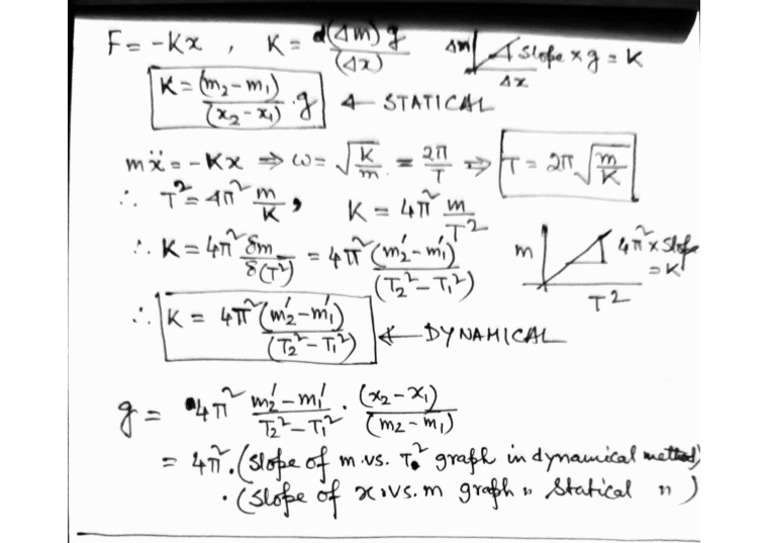 F = -Kx , K = d(Δm) g / (Δx)   Δm   slope × g = K   Δx
K = (m₂ - m₁) / (x₂ - x₁) · g ← STATICAL
mẍ = -Kx ⇒ ω = √(K/m) = 2π/T ⇒ T = 2π√(m/K)
∴ T² = 4π² m/K , K = 4π² m/T²
∴ K = 4π² δm/δ(T²) = 4π² (m₂′ - m₁′) / (T₂² - T₁²)   m   4π² × slope = K   T²
∴ K = 4π² (m₂′ - m₁′) / (T₂² - T₁²) ← DYNAMICAL
g = 4π² (m₂′ - m₁′) / (T₂² - T₁²) · (x₂ - x₁) / (m₂ - m₁)
= 4π² · (slope of m vs. T² graph in dynamical method)
· (slope of x vs. m graph " statical ")